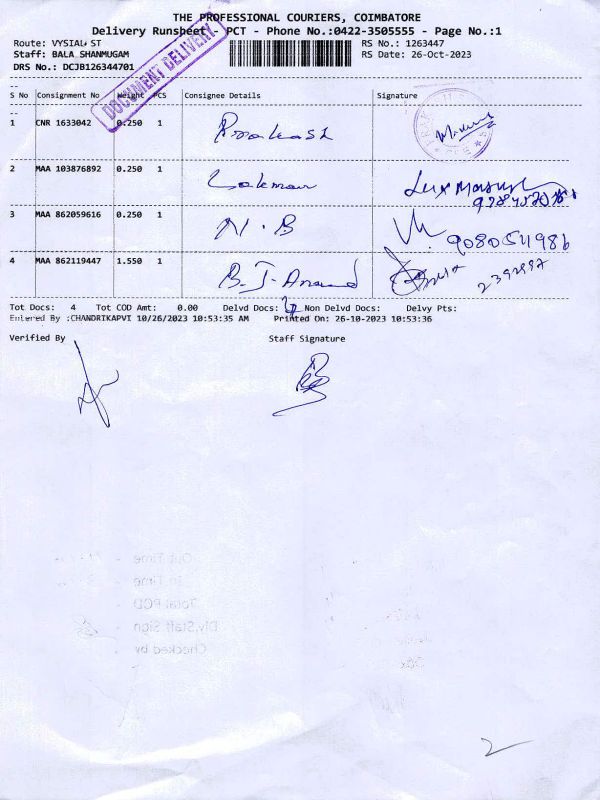 THE PROFESSIONAL COURIERS, COIMBATORE
Delivery Runsheet - PCT - Phone No.:0422-3505555 - Page No.:1
Route: VYSIAL ST RS No.: 1263447
Staff: BALA SHANMUGAM RS Date: 26-Oct-2023
DRS No.: DCJB126344701
DOCUMENT DELIVERY
S No Consignment No Weight PCS Consignee Details Signature
1 CNR 1633042 0.250 1 Prakash
2 MAA 103876892 0.250 1
3 MAA 862059616 0.250 1 N.B
4 MAA 862119447 1.550 1 B.J.Anand
Tot Docs: 4 Tot COD Amt: 0.00 Delvd Docs: Non Delvd Docs: Delvy Pts:
Entered By :CHANDRIKAPVI 10/26/2023 10:53:35 AM Printed On: 26-10-2023 10:53:36
Verified By Staff Signature
Out Time -
In Time -
Total POD -
Dlv.Staff Sign -
Checked by -
2